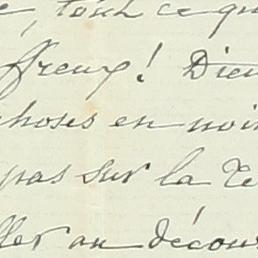 , tout ce qu
ffreux! Dieu
choses en noir
pas sur la Te
ller au décou